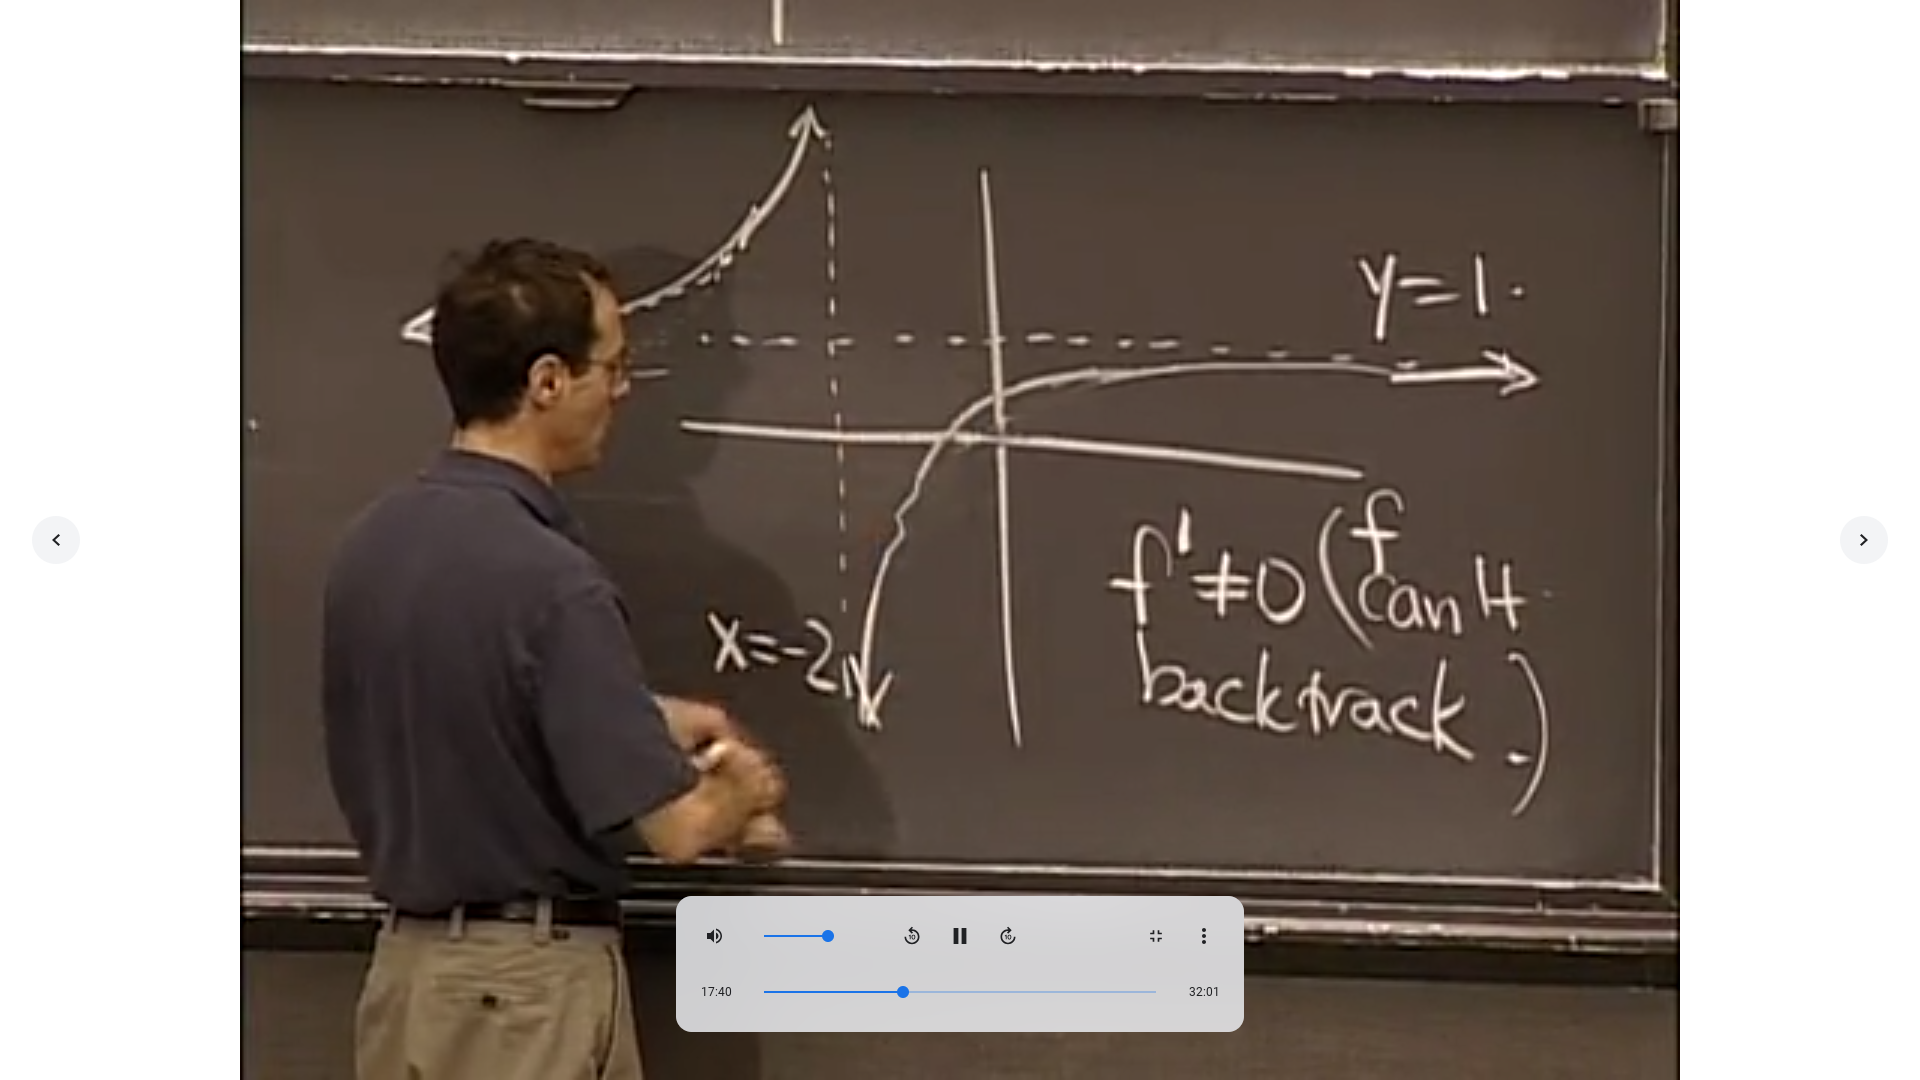 y=1
x=-2
f'≠0 (f
can't
backtrack.)
10
10
17:40
32:01